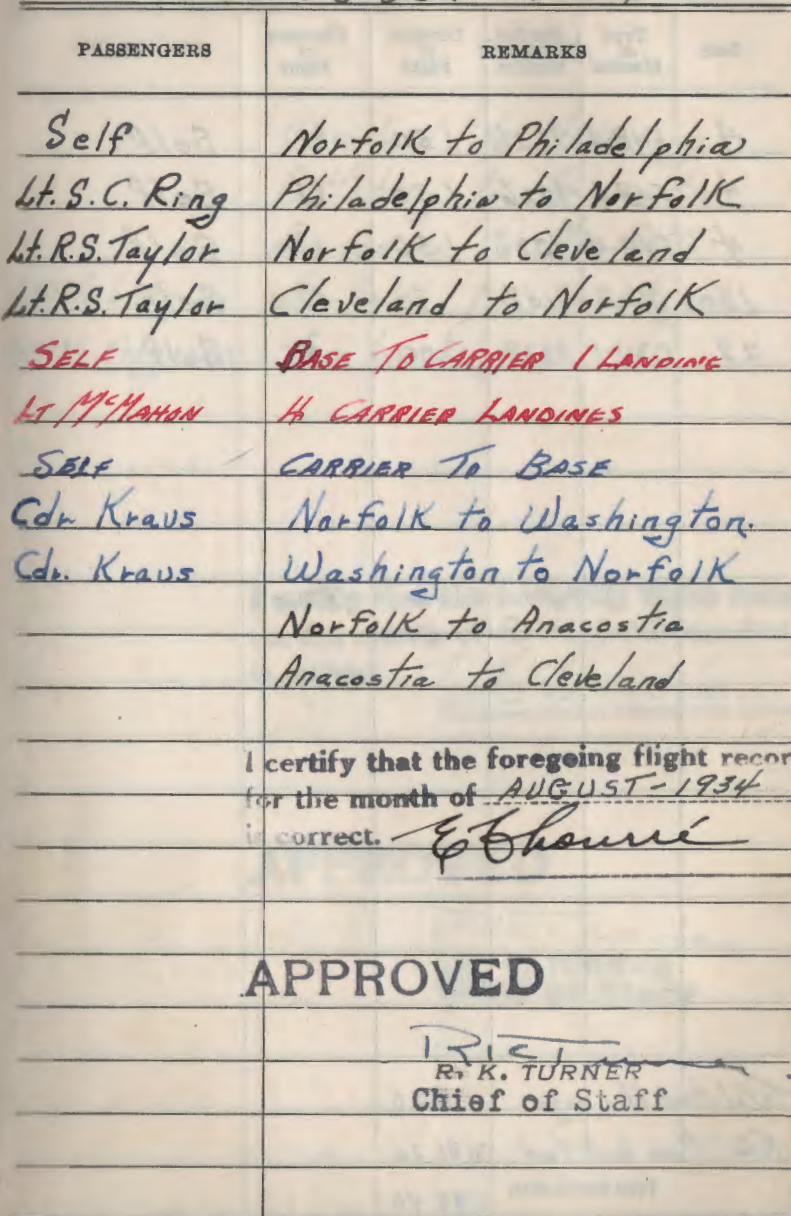 PASSENGERS REMARKS
Self Norfolk to Philadelphia
Lt. S.C. Ring Philadelphia to Norfolk
Lt. R.S. Taylor Norfolk to Cleveland
Lt. R.S. Taylor Cleveland to Norfolk
SELF BASE TO CARRIER 1 LANDING
LT McMAHON 4 CARRIER LANDINGS
SELF CARRIER To BASE
Cdr Kraus Norfolk to Washington.
Cdr. Kraus Washington to Norfolk
Norfolk to Anacostia
Anacostia to Cleveland
I certify that the foregoing flight recor
for the month of AUGUST-1934
is correct.
APPROVED
R. K. TURNER
Chief of Staff